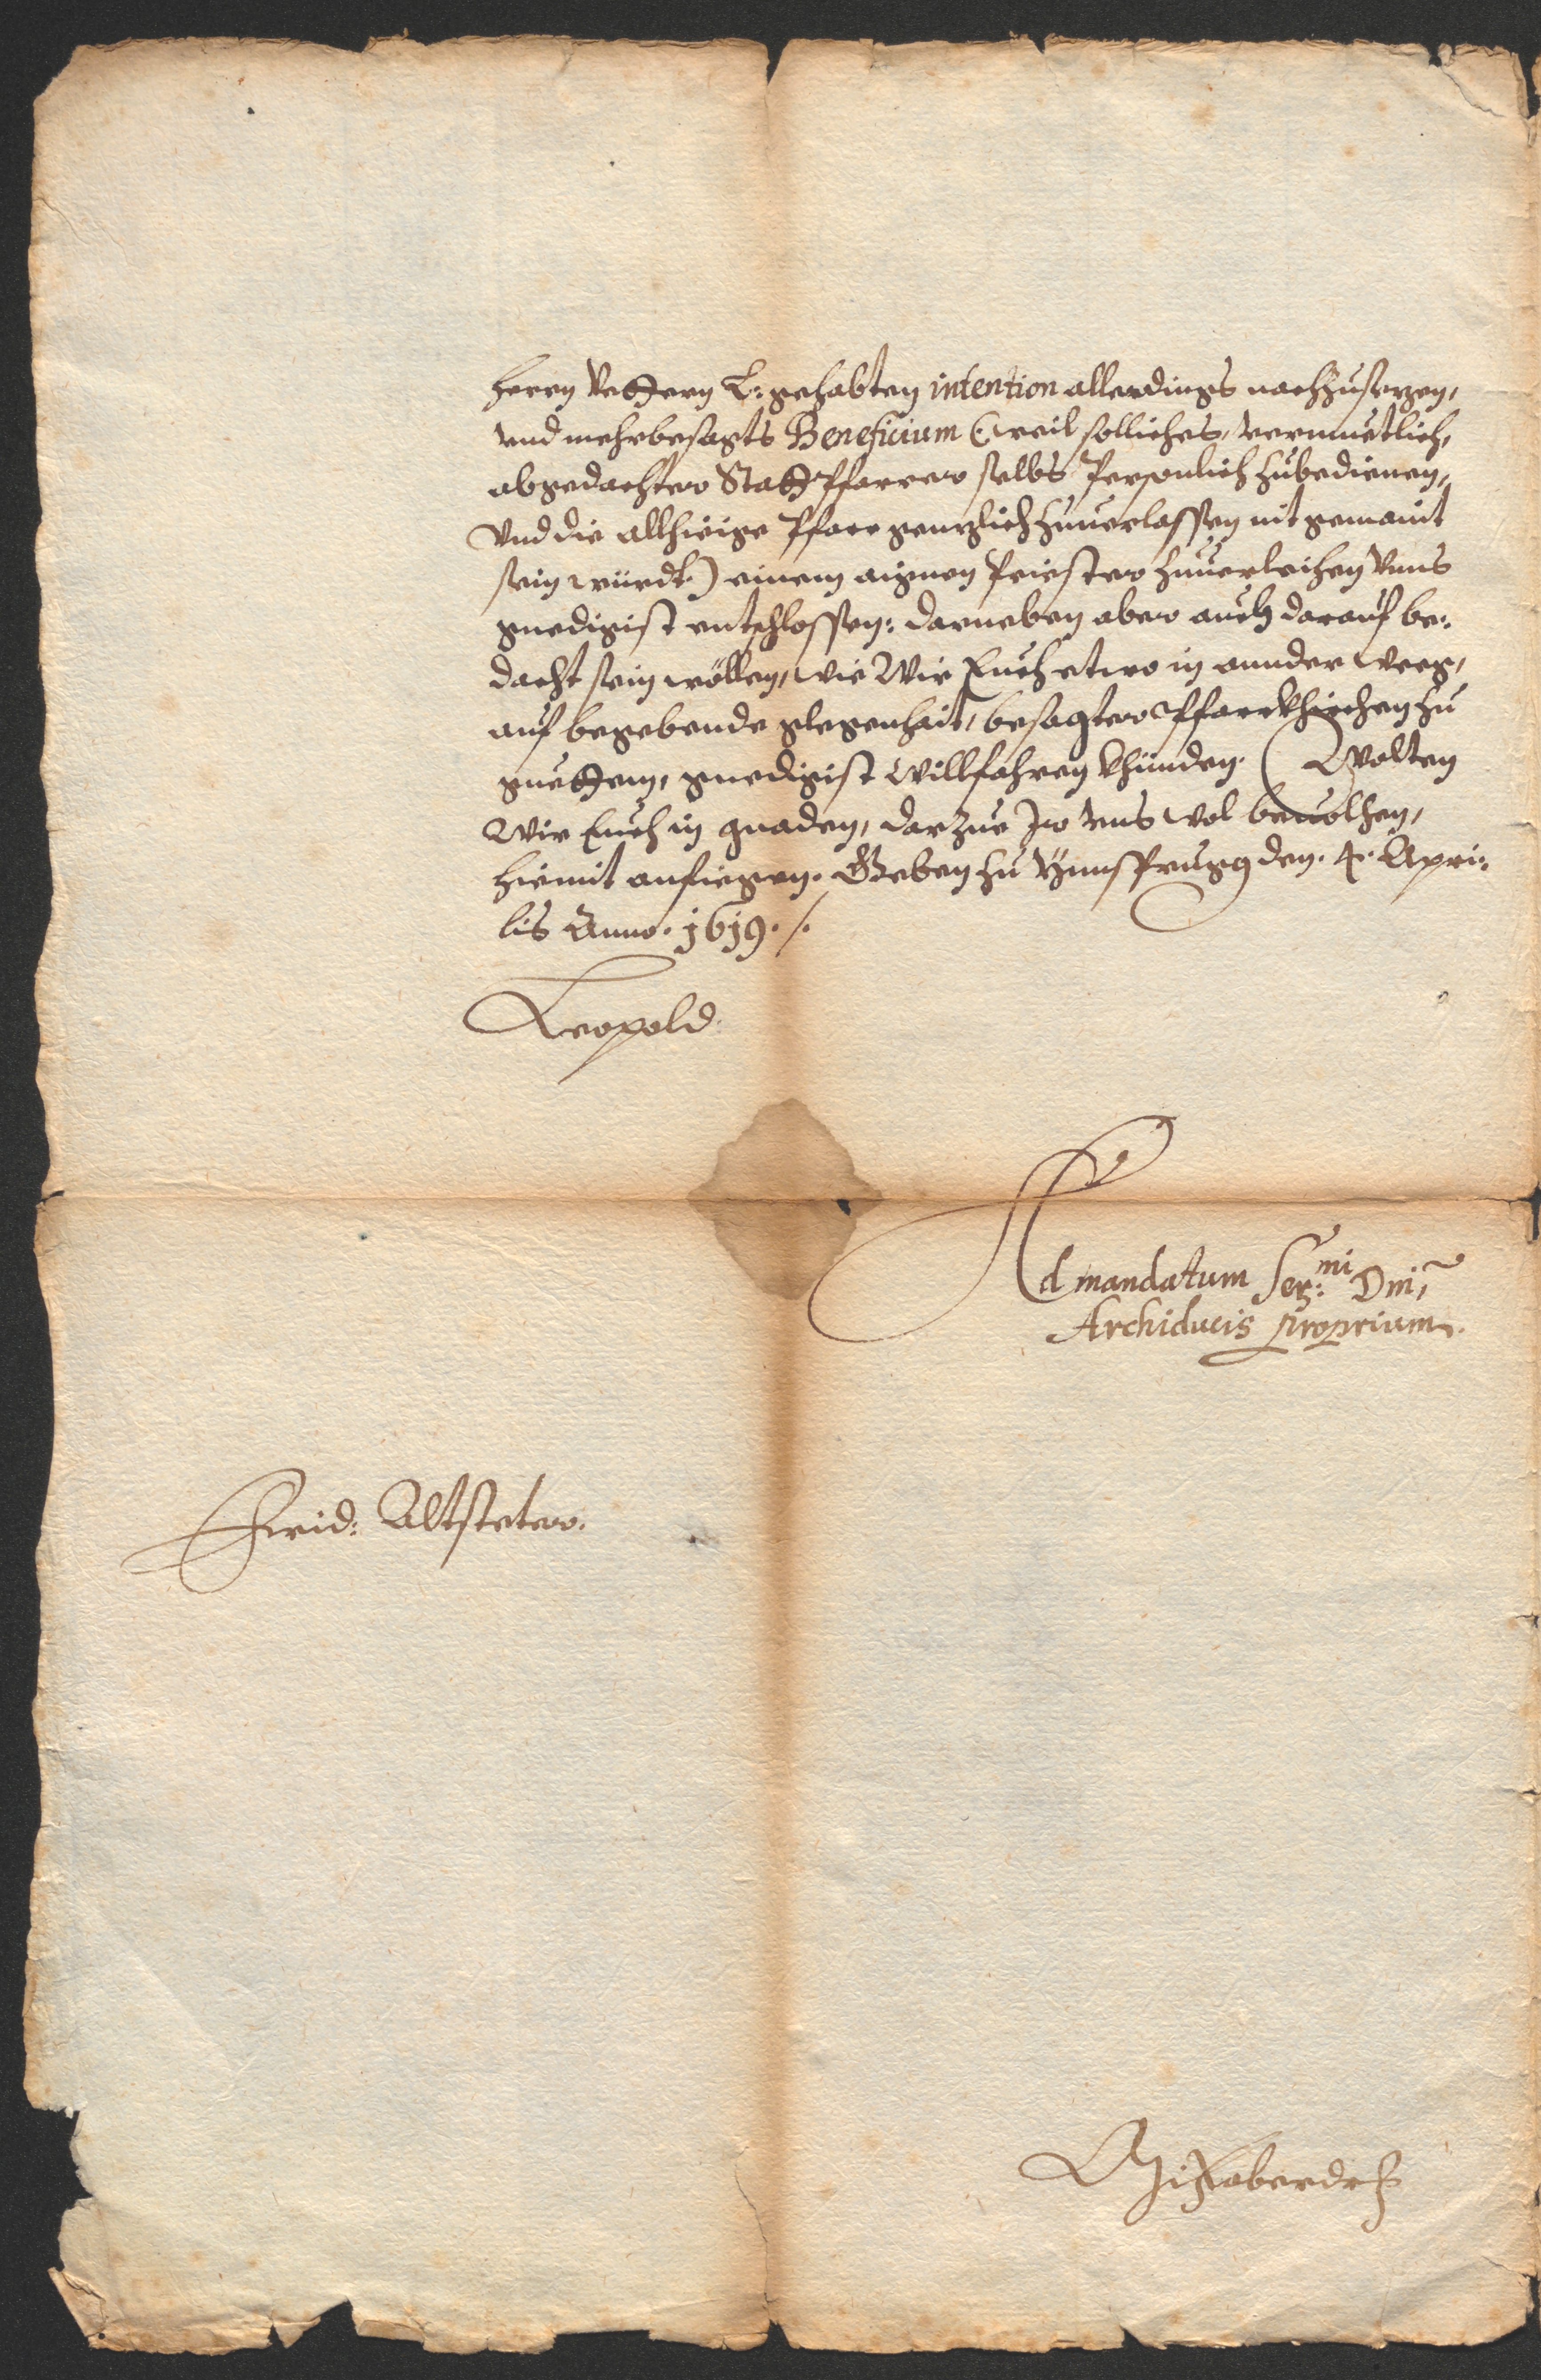 herrn Vettern L: gehabten intention allerdings nachzusezen,
vnd mehrbesagts Beneficium (: weil solliches, vermuetlich,
abgedachter Statt Pfarrer selbs Personlich zubedienen,
Vnd die allhieige Pfarr genzlich zuuerlassen nit gemaint
sein würdt:) einem aignen Priester zuuerleihen Vnns
gnedigist entschlossen: darneben aber auch darauf be:
dacht sein wöllen, wie Wir Euch etwo in annder weeg,
auf begebende glegenhait, besagter Pfarrkhirchen zu
guettem, gnedigist Willfahren khünden. Wolten
Wir Euch in gnaden, darzue Ir vns wol beuolhen,
hiemit anfiegen. Geben zu Ynnsprugg den. 4. Apri:
lis Anno. 1619. /.
Leopold
Ad mandatum Ser:mi Dni,
Archiducis proprium.
Frid: Altsteter.